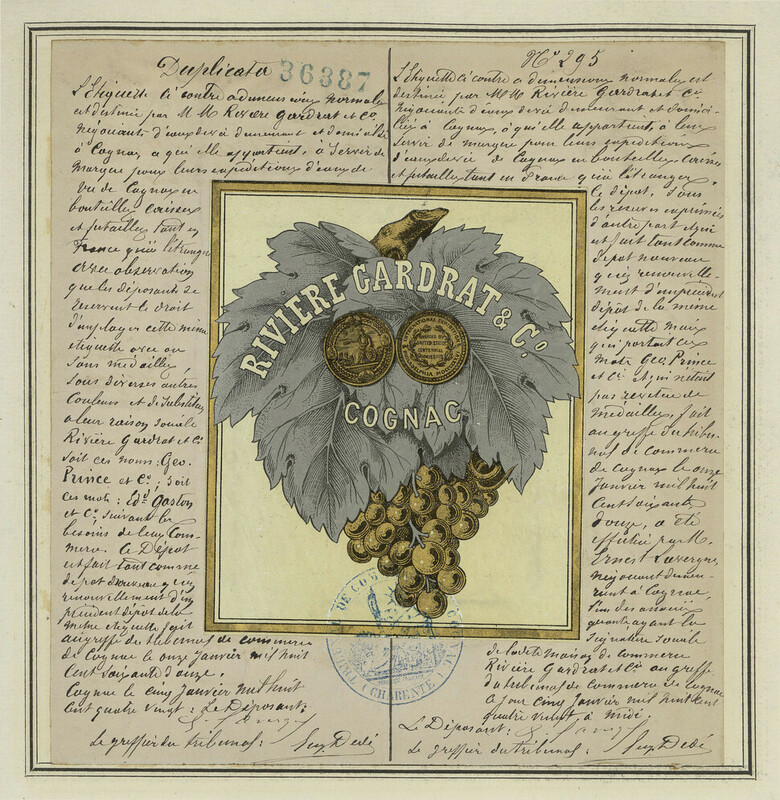 Duplicata 36387
L'Etiquette ci contre a dimensions normales
est destinée par M M Rivière Gardrat et Cº.
négociants d'eaux de vie demeurant et domiciliés
à Cognac a qui elle appartient, à Servir de
Marque pour leurs expéditions d'eaux de
Vie de Cognac en
bouteilles caisses
et futailles tant en
France qu'à l'étranger
avec observation
que les déposants se
réservent le droit
d'employer cette même
étiquette avec ou
Sans médailles,
Sous diverses autres
Couleurs et de Substituer
a leur raison sociale
Rivière Gardrat et Cº
soit ces noms: Geo.
Prince et Cº; Soit
ces mots: Edd Gaston
et Cº; suivant les
besoins de leur Com-
merce. Ce Dépôt
est fait tout comme
dépôt nouveau qu'en
renouvellement d'un
précédent dépôt de la
même étiquette fait
au greffe du tribunal de commerce
de Cognac le onze Janvier mil huit
Cent soixante douze.
Cognac le cinq Janvier mil huit
Cent quatre vingt: Le Déposant:
Le greffier du tribunal: Dedé
Nº 295
L'Etiquette ci contre a dimensions normales est
destinée par M M Rivière Gardrat et Cº
négociants d'eaux de vie demeurant et domici-
liés à Cognac, à qui elle appartient, à leur
Servir de marque pour leurs expéditions
d'eaux de vie de Cognac en bouteilles, caisses
et futailles tant en France qu'à l'étranger.
Ce dépôt, Sous
les réserves exprimées
d'autre part et qui
est fait tant comme
dépôt nouveau
qu'en renouvelle-
ment d'un précédent
dépôt de la même
étiquette mais
qui portait les
mots Geo. Prince
et Cº. et qui n'était
pas revêtue de
médailles, fait
au greffe du tribu-
nal de commerce
de Cognac le onze
Janvier mil huit
Cent soixante
douze, a été
effectué par M.
Ernest Lavergne,
négociant demeu-
rant à Cognac,
l'un des associés
gérants ayant la
Signature Sociale
de la dite maison de commerce
Rivière Gardrat et Cº au greffe
du tribunal de commerce de Cognac
ce jour cinq Janvier mil huit Cent
quatre vingt à midi.
Le Déposant:
Le greffier du tribunal: Dedé
RIVIERE GARDRAT & Cº
COGNAC
INTERNATIONAL EXHIBITION
PHILADELPHIA MDCCCLXXVI
AWARDED BY
UNITED STATES
CENTENNIAL
COMMISSION
TRIBUNAL DE COMMERCE
(CHARENTE)